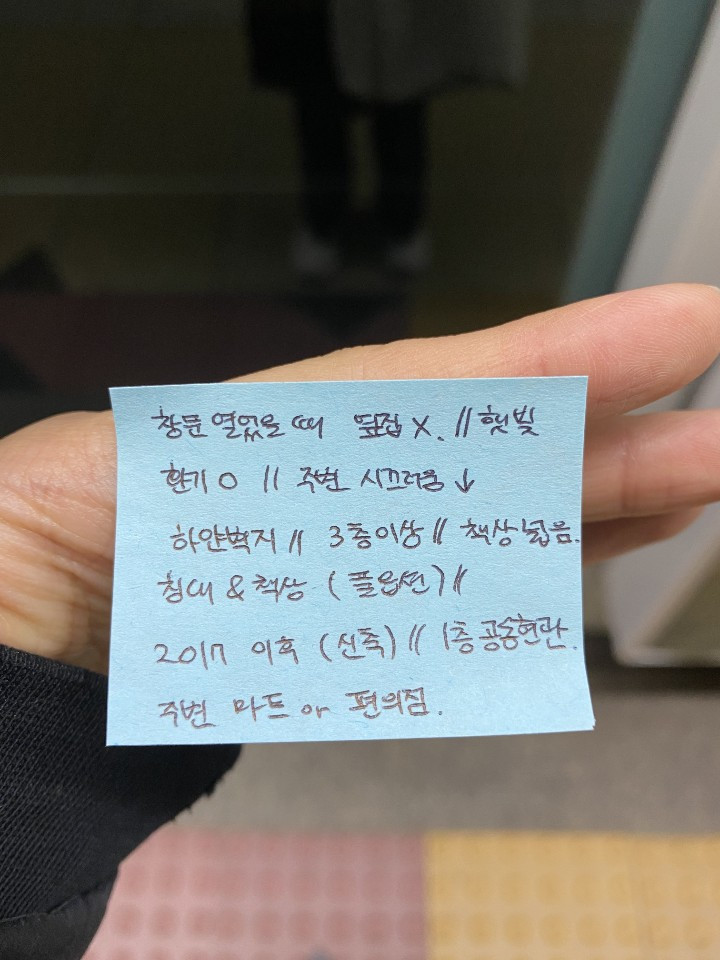 창문 열었을 때 옆집 X. // 햇빛
환기 O // 주변 시끄러움 ↓
하얀벽지 // 3층이상 // 책상 넓음.
침대 & 책상 (풀옵션) //
2017 이후 (신축) // 1층 공동현관.
주변 마트 or 편의점.